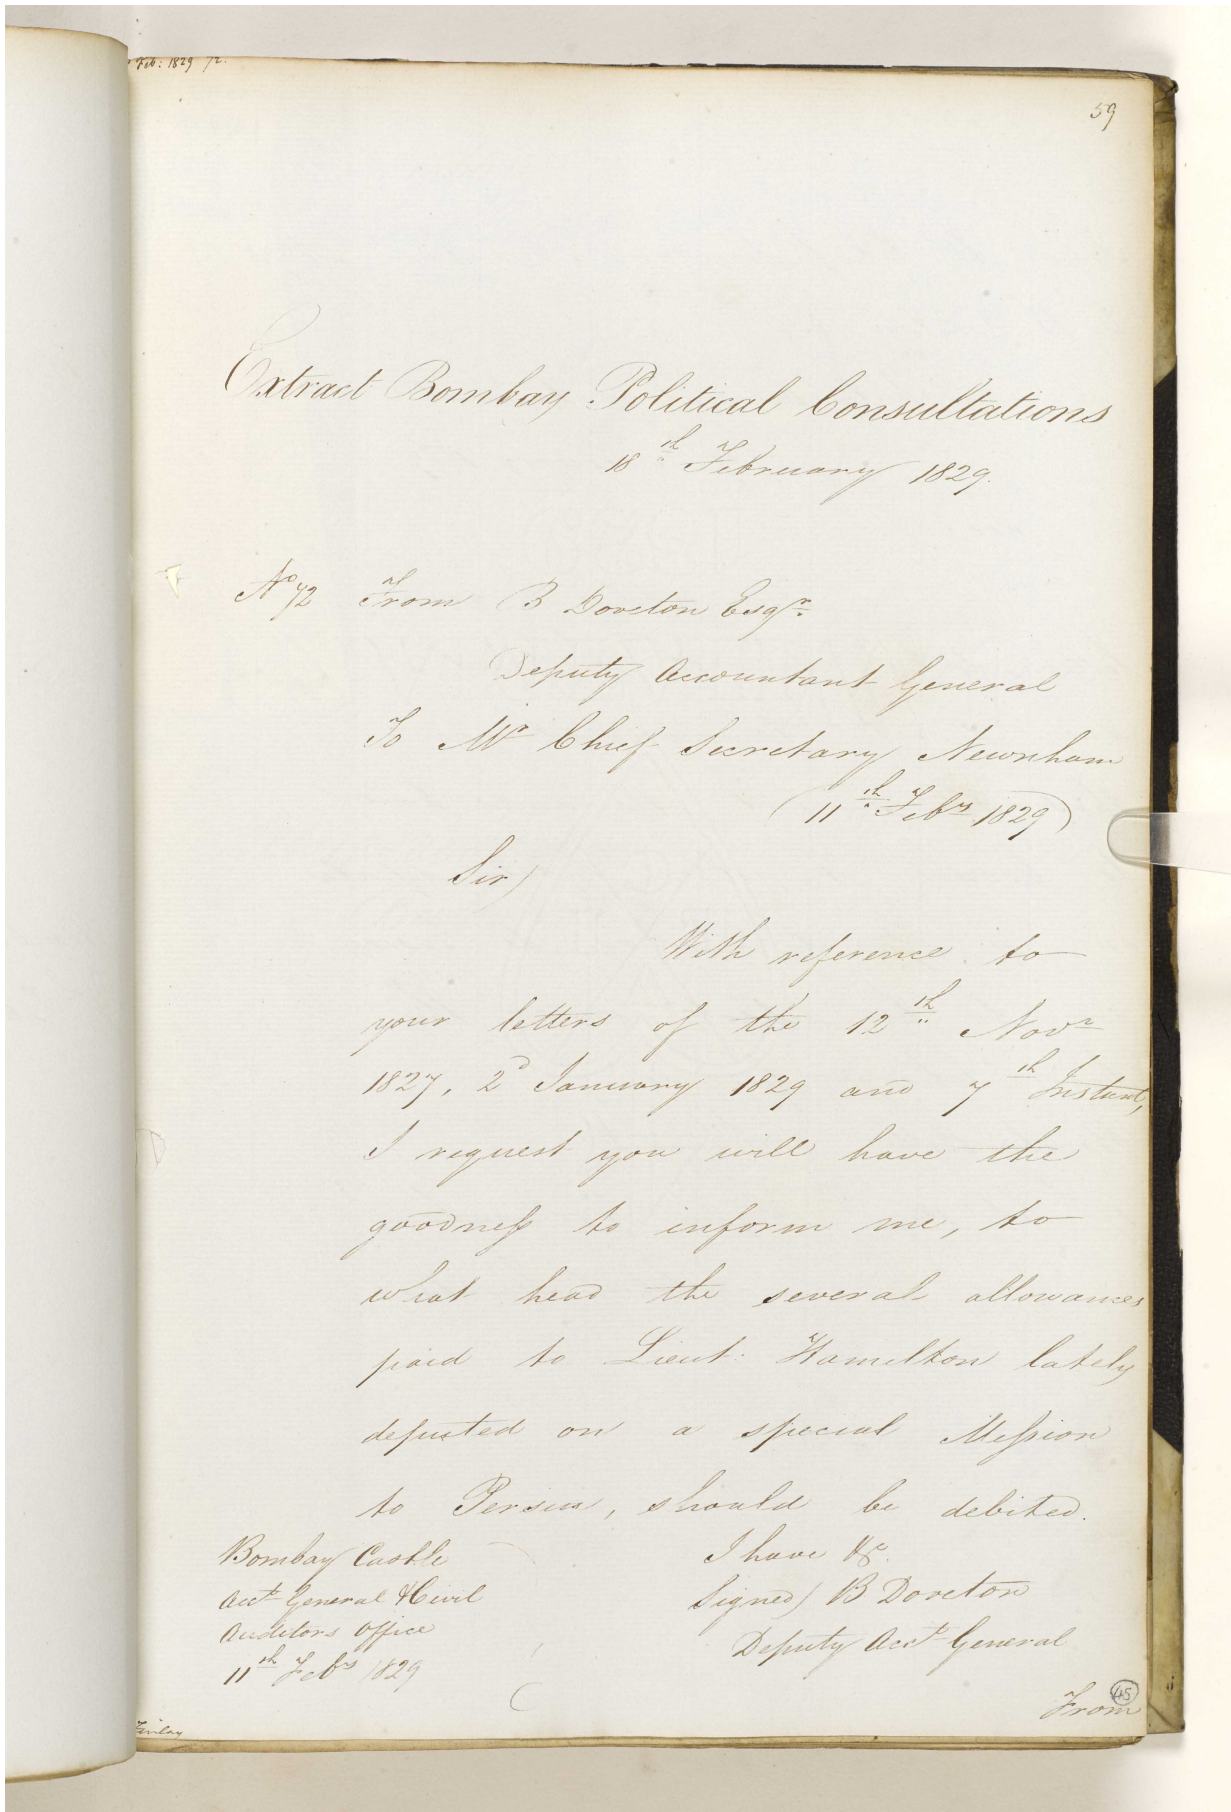 Feb: 1829 72.
59
Extract Bombay Political Consultations
18th February 1829.
No 72 From B Doveton Esqr.
Deputy Accountant General
To Mr Chief Secretary Newnham
(11th Feby 1829)
Sir)
With reference to
your letters of the 12th Novr
1827, 2d January 1829 and 7th Instant,
I request you will have the
goodneſs to inform me, to
what head the several allowances
paid to Lieut. Hamelton lately
deputed on a special Miſsion
to Persia, should be debited.
Bombay Castle
Acct General & Civil
Auditors Office
11th Feby 1829
I have &c.
Signed) B Doveton
Deputy Acct General
45
From
Finlay